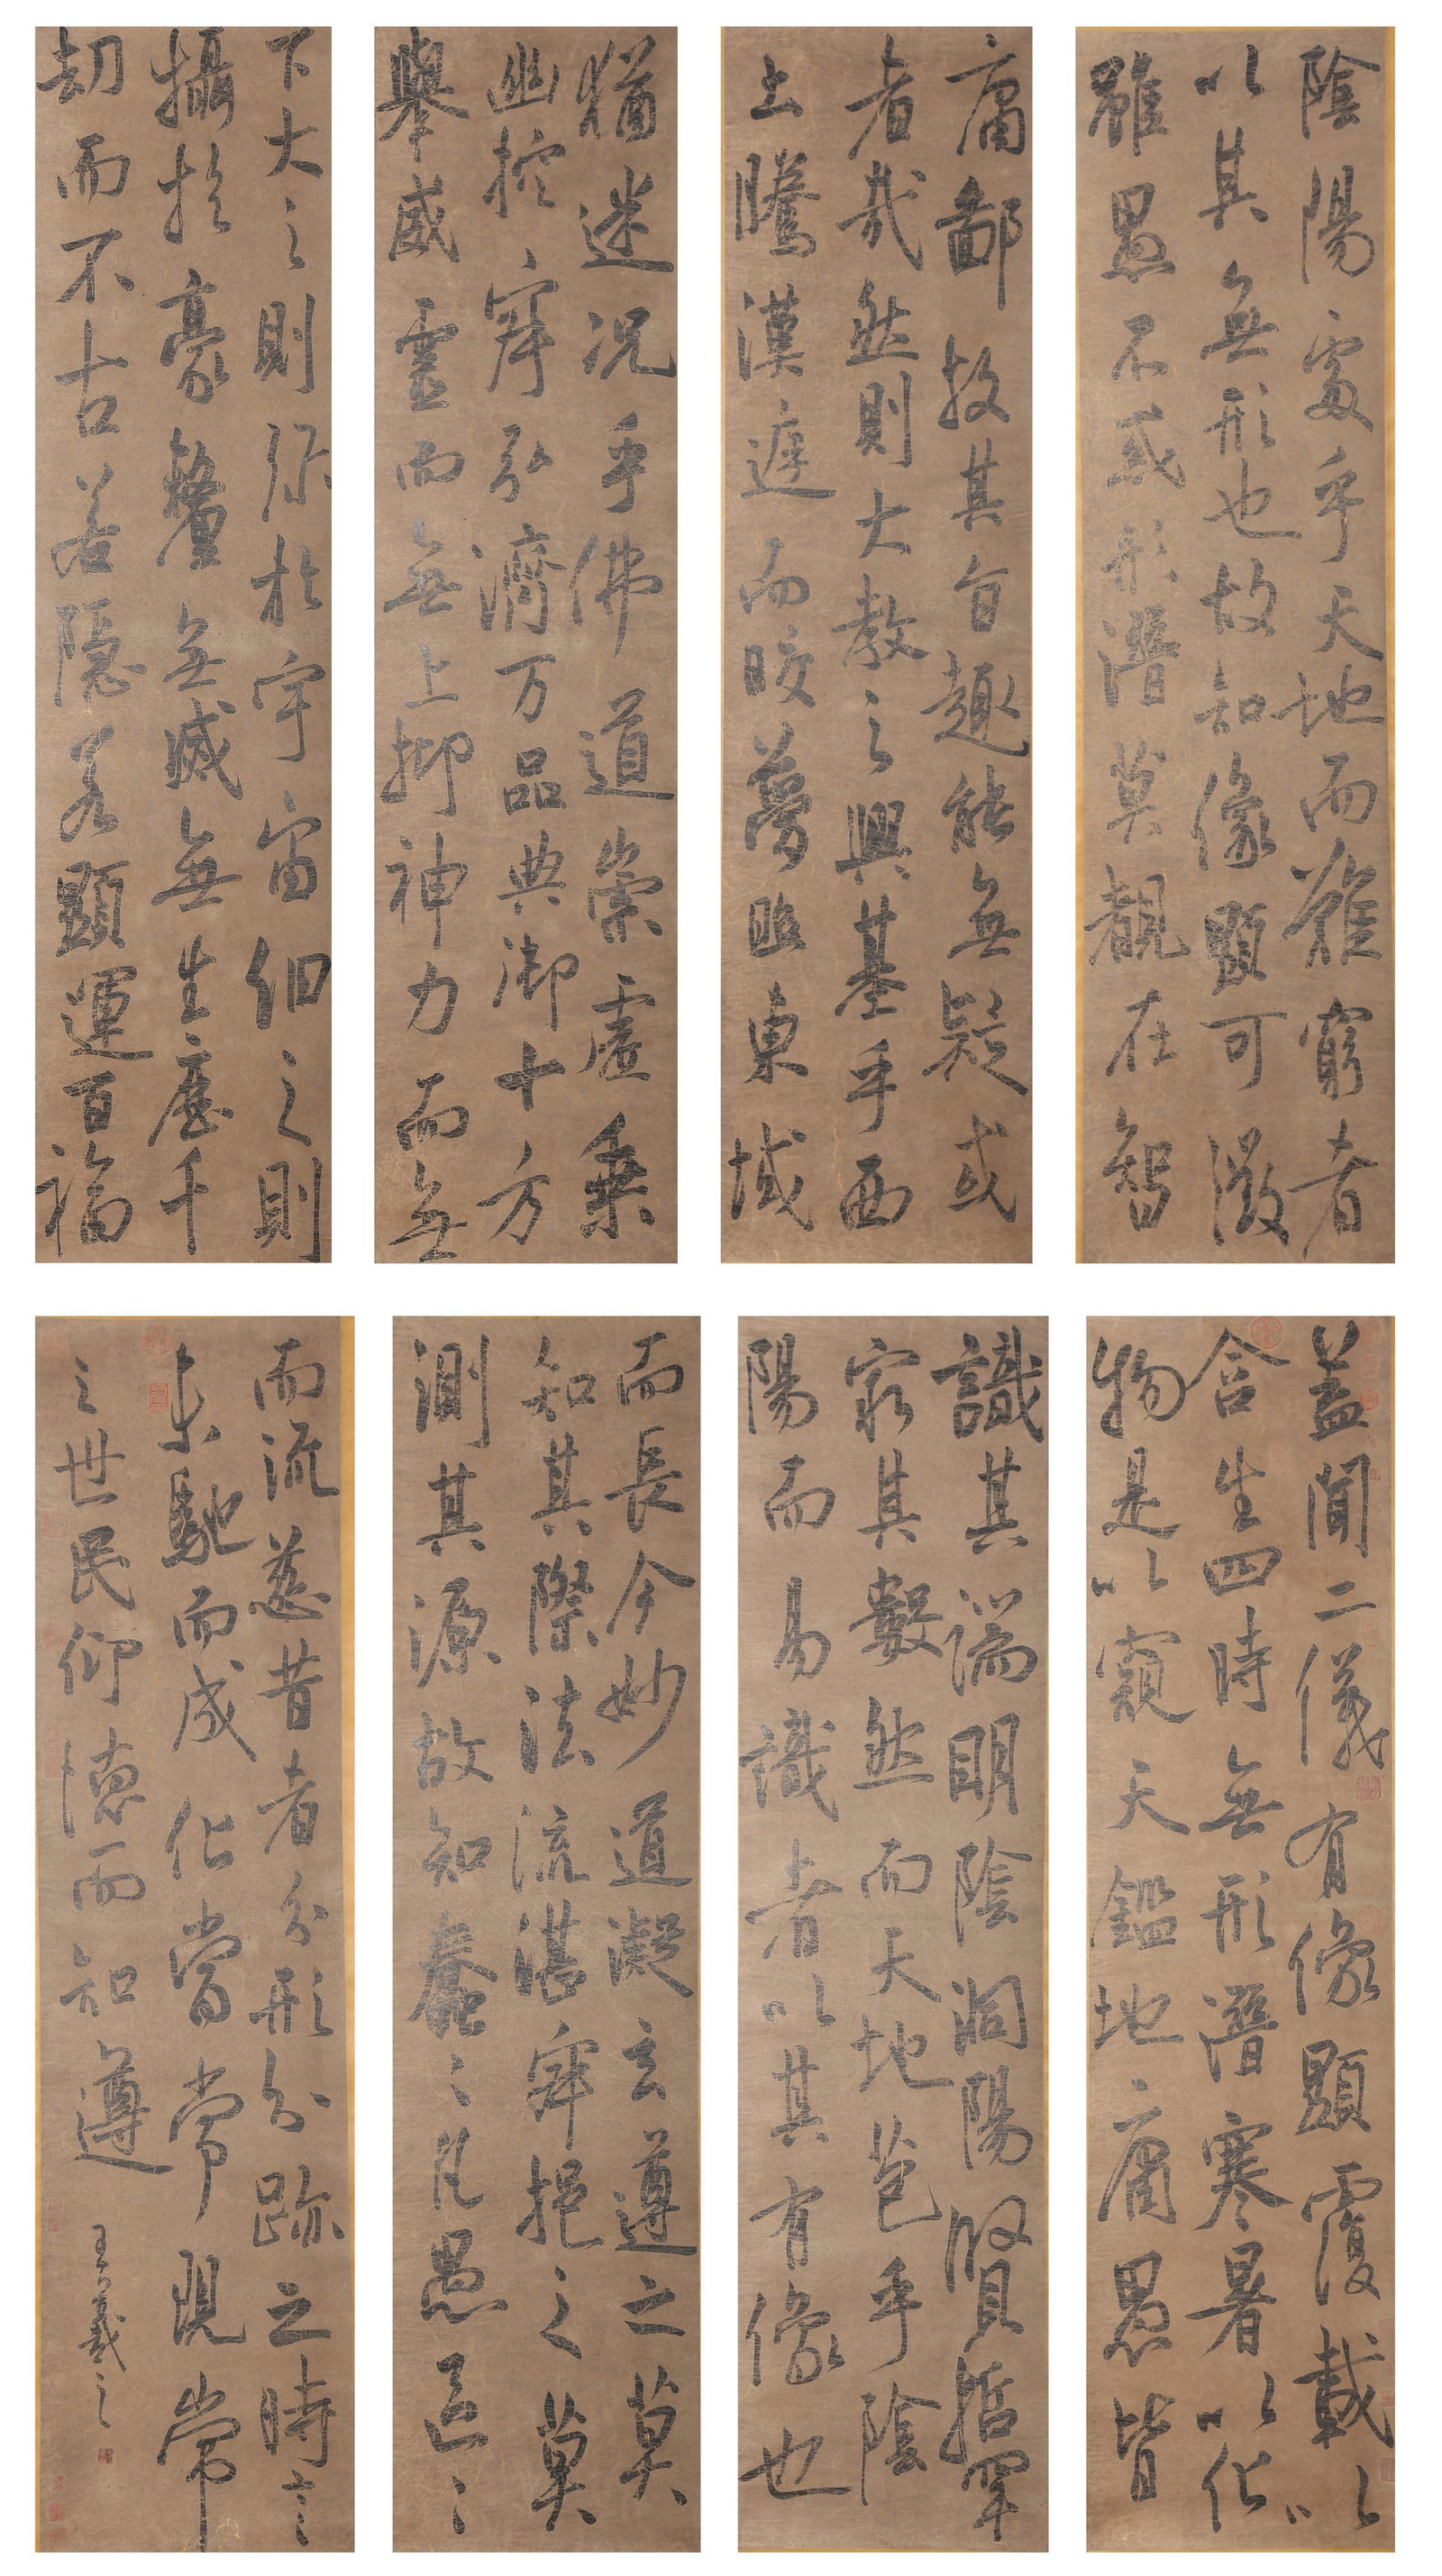 蓋聞二儀有像顯覆載以
含生四時無形潛寒暑以化
物是以窺天鑑地庸愚皆
識其端明陰洞陽賢哲罕
窮其數然而天地苞乎陰
陽而易識者以其有像也
陰陽處乎天地而難窮者
以其無形也故知像顯可徵
雖愚不惑形潛莫覩在智
猶迷況乎佛道崇虛乘
幽控寂弘濟万品典御十方
舉威靈而無上抑神力而無
下大之則彌於宇宙細之則
攝於豪釐無滅無生歷千
劫而不古若隱若顯運百福
而長今妙道凝玄遵之莫
知其際法流湛寂挹之莫
測其源故知蠢々凡愚區々
庸鄙投其旨趣能無疑或
者哉然則大教之興基乎西
土騰漢庭而皎夢照東域
而流慈昔者分形分跡之時言
未馳而成化當常現常
之世民仰德而知遵
王羲之